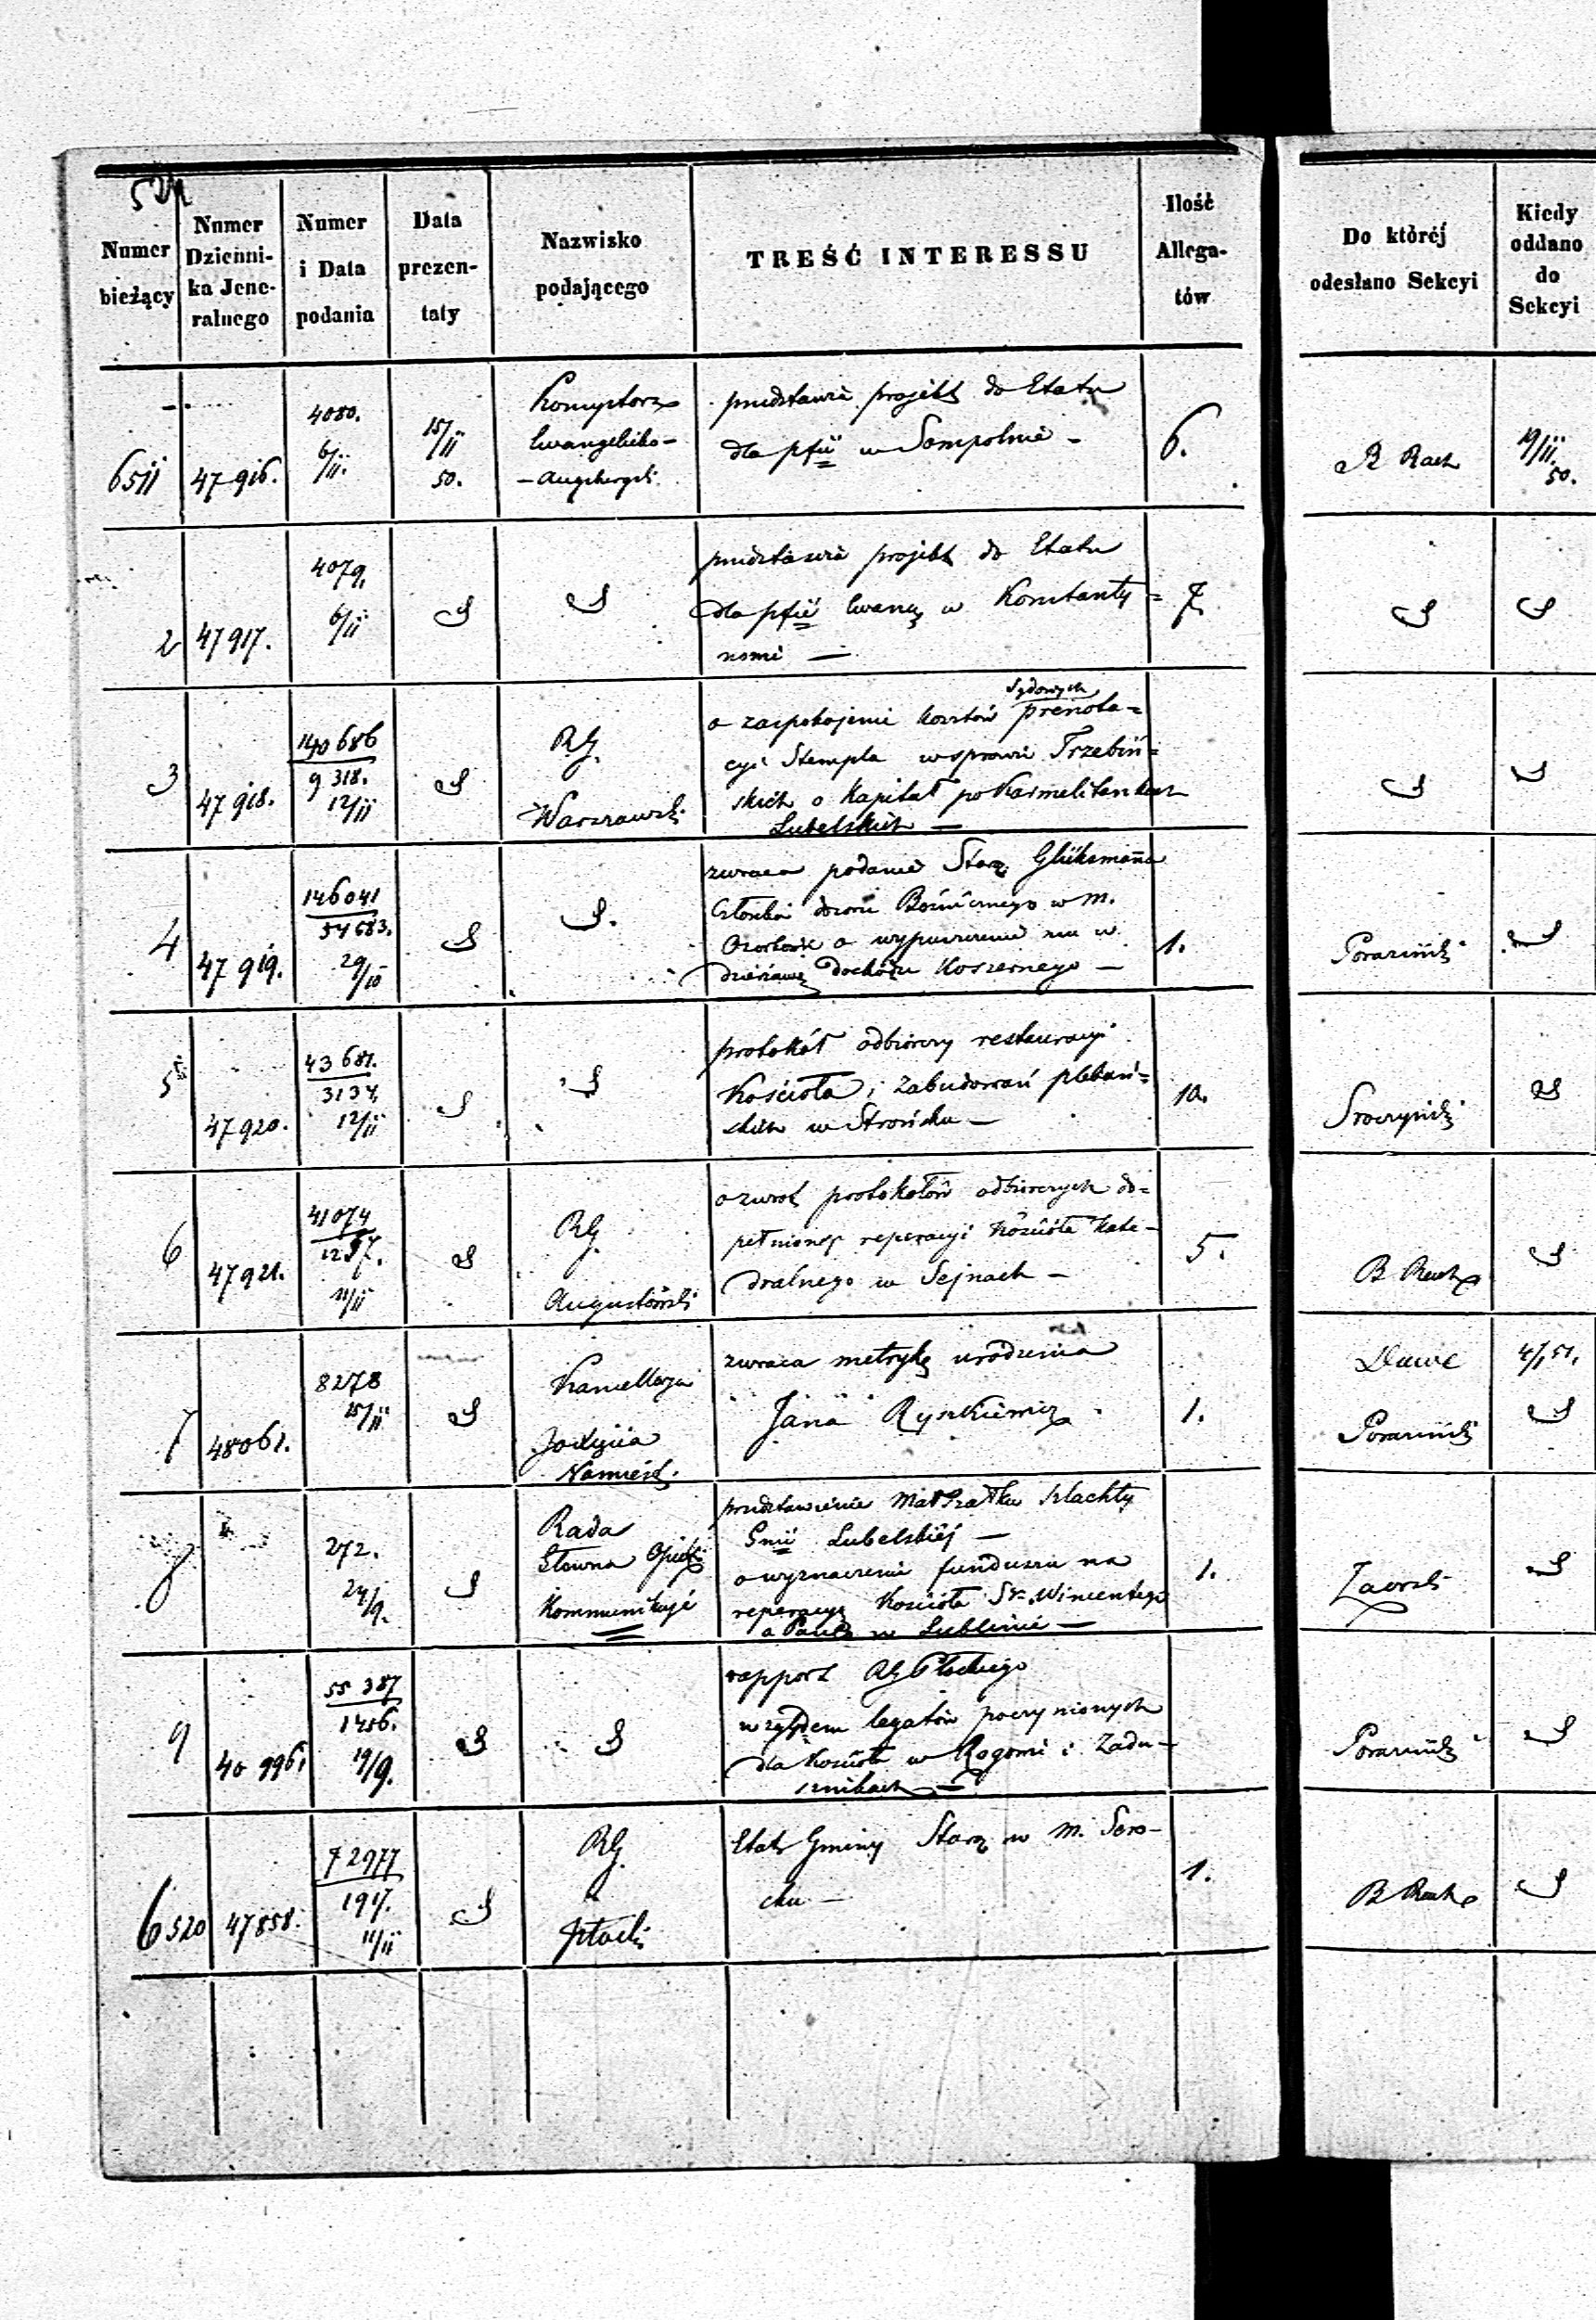 Numer bieżący
Numer Dzienni-ka Jene-ralnego
Numer i Data podania
Data prezen-taty
Nazwisko podającego
TREŚĆ INTERESSU
Ilość Allega-tów
Do któréj odesłano Sekcyi
Kiedy oddano do Sekcyi
6511
47 916.
4080.
6/11.
15/11
50.
Konsystorz
Ewangelicko-
-Augsburgski
przedstawia projekt do Etatu
dla pfii w Sompolnie -
6.
R Rach
19/11.
50.
2
47 917.
4079.
6/11
przedstawia projekt do Etatu
dla pfii Ewang w Konstanty=
nowie —
7.
3
47 918.
140 686
9 318.
12/11
RG.
Warszawski
Sądowych
o zaspokojenie kosztów prenota=
cyi Stempla w sprawie Trzebiń=
skich o Kapitał po Karmelitankach
Lubelskich —
4
47 919.
146 041
54 683.
29/10
zwraca podanie Star. Glüksmanna
Członka dozoru Bożnicznego w m.
Ozorkowie o wypuszczenie mu w
dzierżawę dochodu Koszernego —
1.
5
47 920.
43 681.
3134.
12/11
protokół odbiorczy restauracyi
Kościoła i Zabudowań plebań=
skich w Strońsku —
10.
Sroczyński
6
47 921.
41 074
1257.
11/11
RG.
Augustowski
o zwrot protokołów odbiorczych do=
pełnionej reperacyi Kościoła Kate-
dralnego w Sejnach —
5.
B Rach
7
48061.
8278
15/11
Kancellarya
Xięcia
Namiest.
zwraca metrykę urodzenia
Jana Ryszkiewicz
1.
4/1 51.
8
272.
24/9.
Rada
Główna Opiek.
Kommunikuje
przedstawienie Marszałka Szlachty
Gnii Lubelskiéj —
o wyznaczenie funduszu na
reperacyę Kościoła Sgo Wincentego
a Paulo w Lublinie —
1.
9
40 996.
55 387
1456.
19/9.
rapport RG Płockiego
względem legatów poczynionych
dla Kościoła w Rogowie i Zadu-
sznikach —
6520
47 858.
72977
1917.
11/11
RG.
Płocki
Etat Gminy Star. w m. Sero-
cku —
1.
B Rach